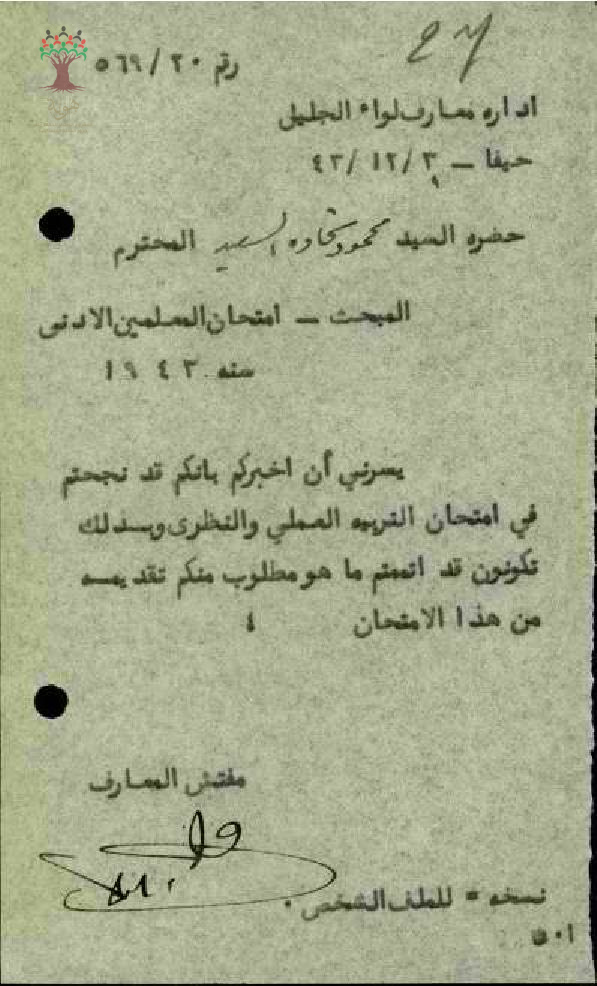 رقم ٢٠ / ٥٦٩
اداره معارف لواء الجليل
حيفا – ٣ / ١٢ / ٤٣
حضره السيد محمود السعيد المحترم
المبحث – امتحان المعلمين الادنى
سنه ١٩٤٣
يسرني أن اخبركم بانكم قد نجحتم
في امتحان التربيه العملي والنظرى وبسذلك
تكونون قد اتممتم ما هو مطلوب منكم تقديمسه
من هذا الامتحان ٤
مفتش المعارف
نسخه = للملف الشخصي ٠